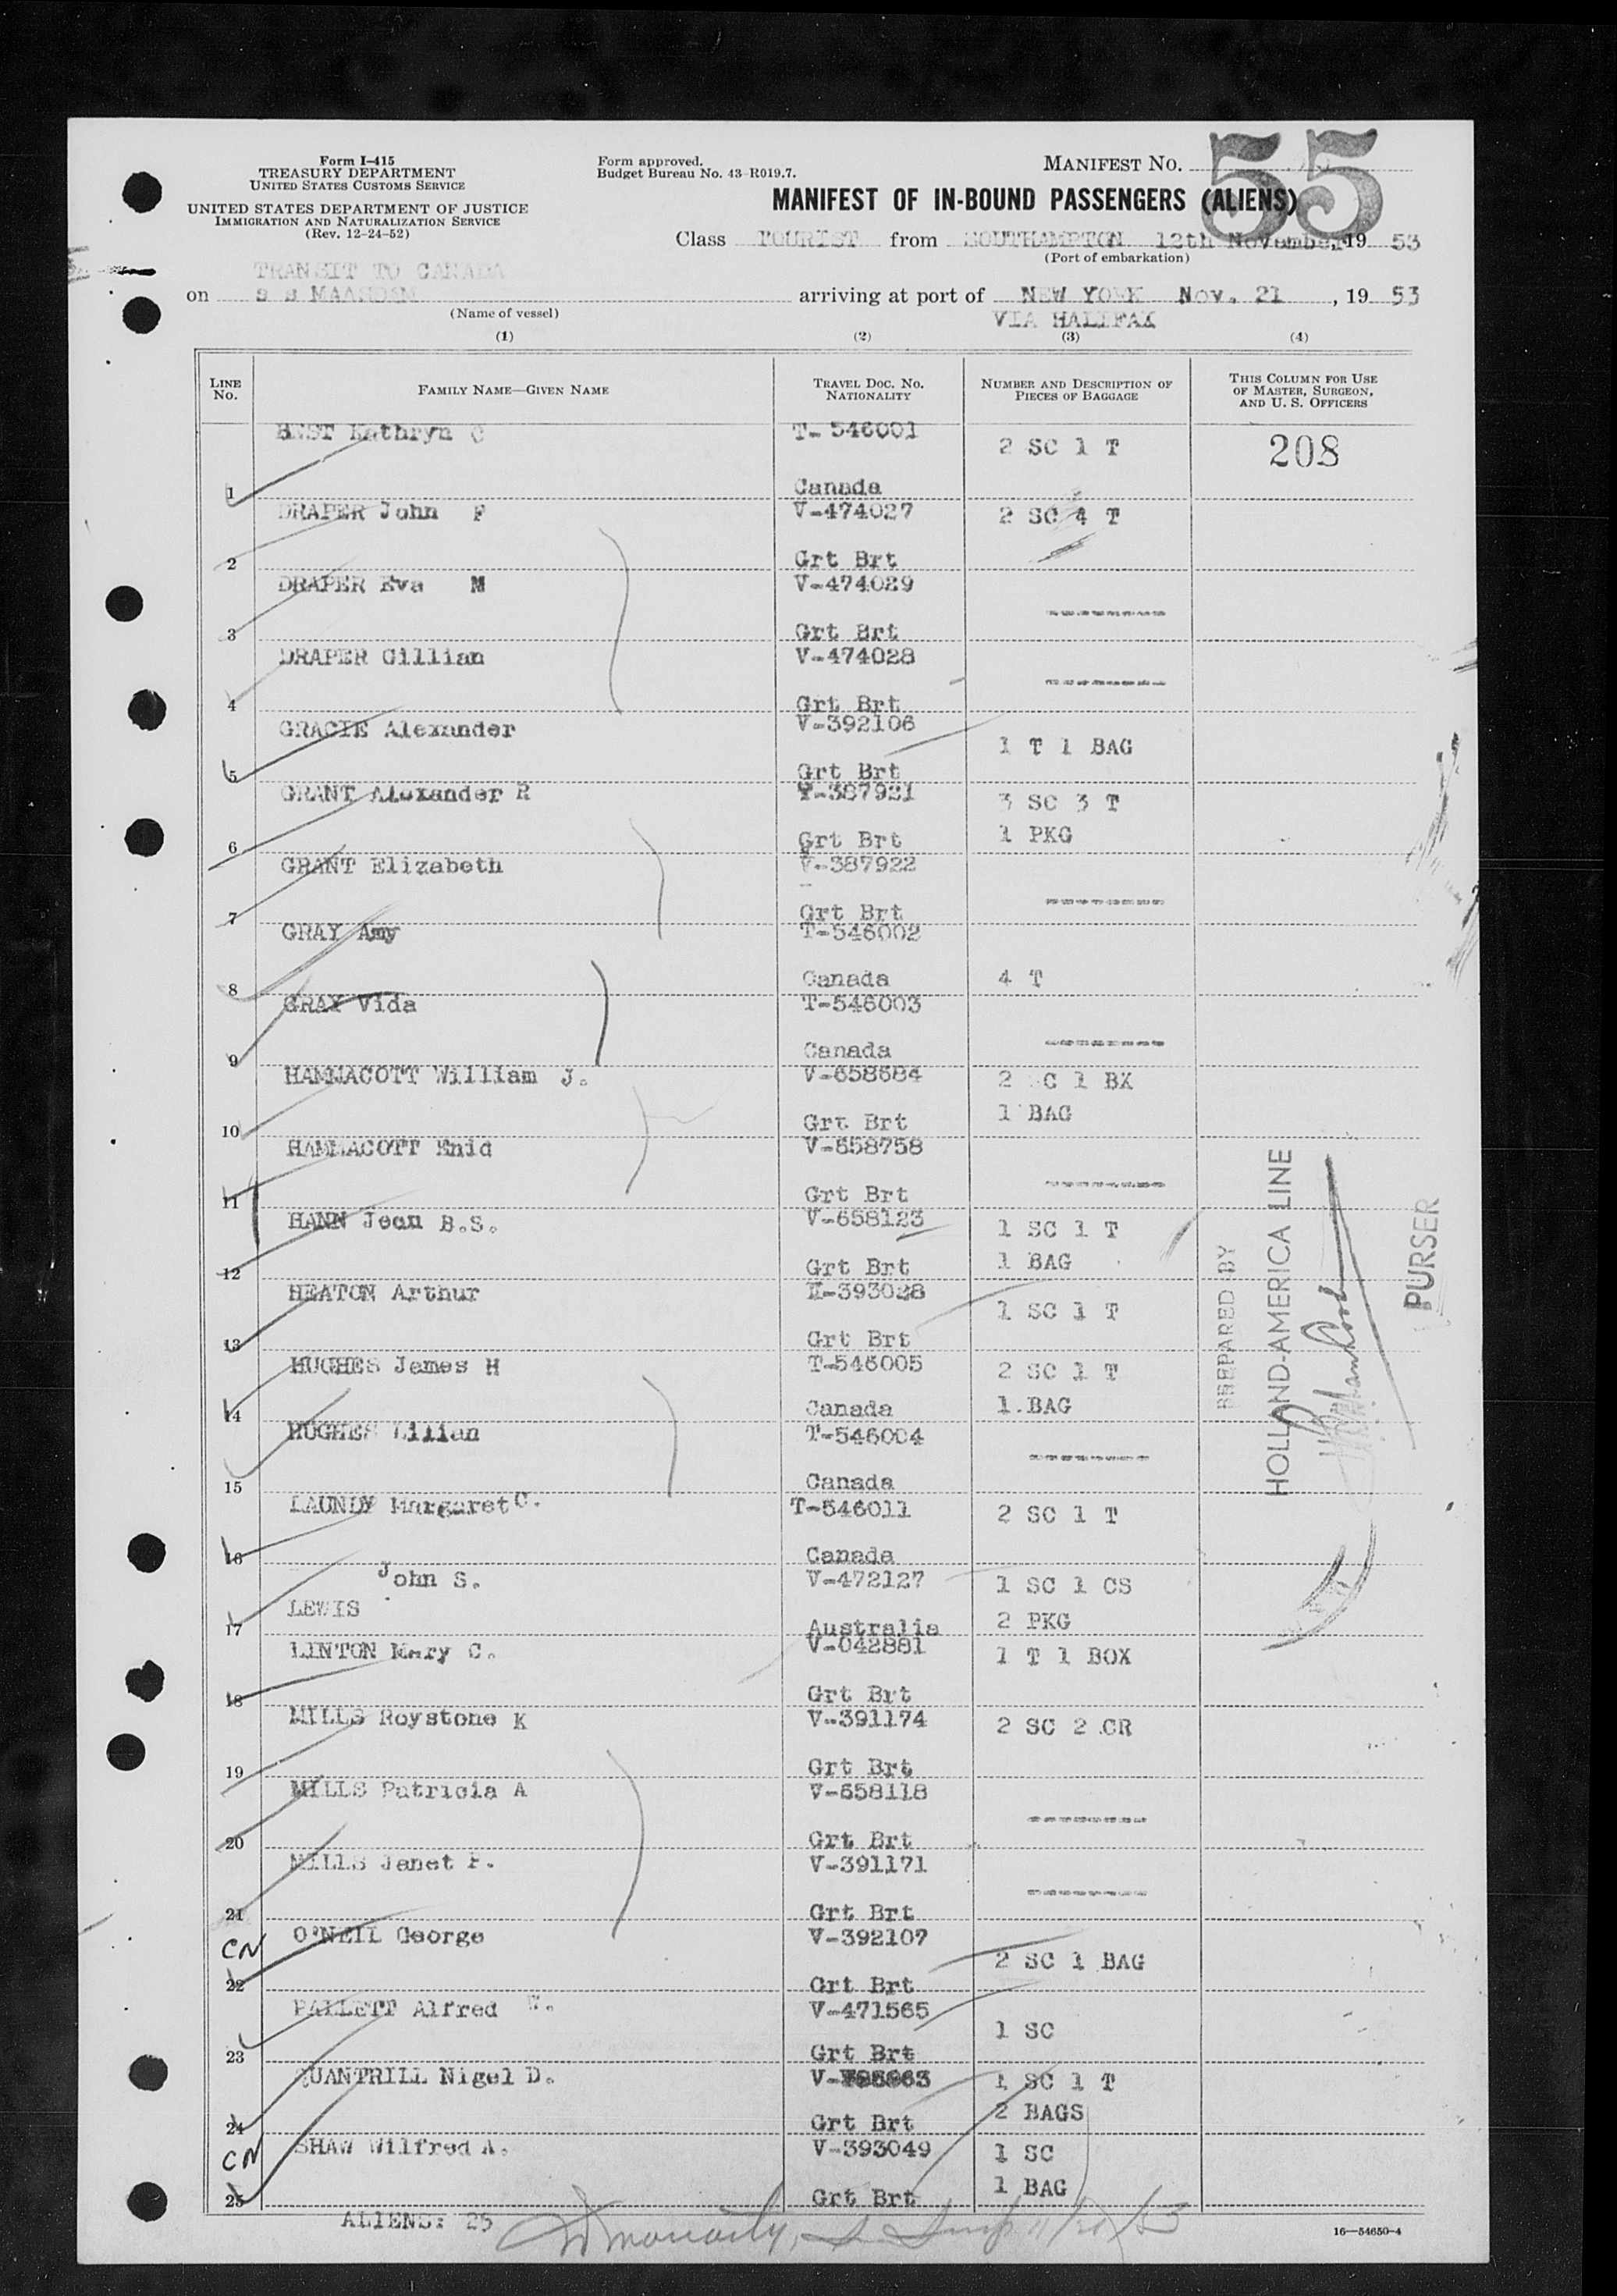 Form I-415
TREASURY DEPARTMENT
UNITED STATES CUSTOMS SERVICE
UNITED STATES DEPARTMENT OF JUSTICE
IMMIGRATION AND NATURALIZATION SERVICE
(Rev. 12-24-52)
Form approved.
Budget Bureau No. 43-R019.7.
MANIFEST NO. 55
MANIFEST OF IN-BOUND PASSENGERS (ALIENS)
Class TOURIST from SOUTHAMPTON 12th November, 19 53
(Port of embarkation)
TRANSIT TO CANADA
on s s MAASDAM arriving at port of NEW YORK Nov. 21, 19 53
(Name of vessel) VIA HALIFAX
(1) (2) (3) (4)
LINE No. FAMILY NAME—GIVEN NAME TRAVEL DOC. NO. NATIONALITY NUMBER AND DESCRIPTION OF PIECES OF BAGGAGE THIS COLUMN FOR USE OF MASTER, SURGEON, AND U. S. OFFICERS
BEST Kathryn C T-546001 2 SC 1 T 208
1 Canada
DRAPER John F V-474027 2 SC 4 T
2 Grt Brt
DRAPER Eva M V-474029
3 Grt Brt
DRAPER Gillian V-474028
4 Grt Brt
GRACIE Alexander V-392106 1 T 1 BAG
5 Grt Brt
GRANT Alexander R V-387921 3 SC 3 T
6 Grt Brt 1 PKG
GRANT Elizabeth V-387922
7 Grt Brt
GRAY Amy T-546002
8 Canada 4 T
GRAY Vida T-546003
9 Canada
HAMMACOTT William J. V-658684 2 SC 1 BX
10 Grt Brt 1 BAG
HAMMACOTT Enid V-658758
11 Grt Brt
HANN Jean B.S. V-658123 1 SC 1 T
12 Grt Brt 1 BAG
HEATON Arthur -393028 1 SC 1 T
13 Grt Brt
HUGHES James H T-546005 2 SC 1 T
14 Canada 1 BAG
HUGHES Lilian T-546004
15 Canada
LAUNDY Margaret C. T-546011 2 SC 1 T
16 Canada
John S. V-472127 1 SC 1 CS
LEWIS
17 Australia 2 PKG
LINTON Mary C. V-042881 1 T 1 BOX
18 Grt Brt
MILLS Roystone K V-391174 2 SC 2 CR
19 Grt Brt
MILLS Patricia A V-658118
20 Grt Brt
MILLS Janet P. V-391171
21 Grt Brt
CN O'NEIL George V-392107 2 SC 1 BAG
22 Grt Brt
PALLETT Alfred V-471565 1 SC
23 Grt Brt
QUANTRILL Nigel D. 1 SC 1 T
24 Grt Brt 2 BAGS
CN SHAW Wilfred A. V-393049 1 SC
25 Grt Brt 1 BAG
ALIENS: 25
16—54650-4
PREPARED BY
HOLLAND-AMERICA LINE
PURSER